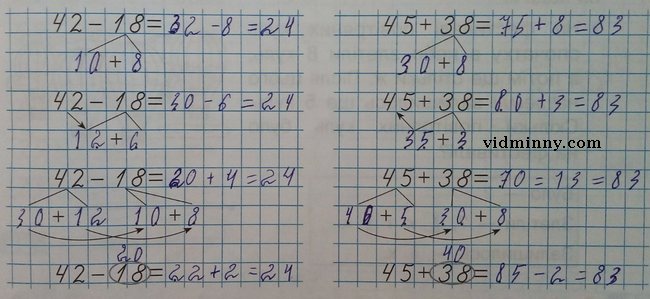 42 − 18 = 32 − 8 = 24
10 + 8
42 − 18 = 30 − 6 = 24
12 + 6
42 − 18 = 20 + 4 = 24
30 + 12 10 + 8
20
42 − 18 = 22 + 2 = 24
45 + 38 = 75 + 8 = 83
30 + 8
45 + 38 = 80 + 3 = 83
35 + 3
vidminny.com
45 + 38 = 70 = 13 = 83
40 + 5 30 + 8
40
45 + 38 = 85 − 2 = 83